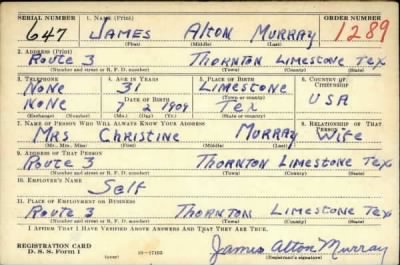 SERIAL NUMBER 1. NAME (Print) ORDER NUMBER
647 JAMES Alton MURRAY 1289
(First) (Middle) (Last)
2. ADDRESS (Print)
Route 3 THORNTON LIMESTONE TEX
(Number and street or R. F. D. number) (Town) (County) (State)
3. TELEPHONE 4. AGE IN YEARS 5. PLACE OF BIRTH 6. COUNTRY OF CITIZENSHIP
NONE 31 LIMESTONE
DATE OF BIRTH (Town or county) USA
NONE 7 1909 TEX
(Exchange) (Number) (Mo.) (Day) (Yr.) (State or country)
7. NAME OF PERSON WHO WILL ALWAYS KNOW YOUR ADDRESS 8. RELATIONSHIP OF THAT PERSON
MRS Christine MURRAY Wife
(Mr., Mrs., Miss) (First) (Middle) (Last)
9. ADDRESS OF THAT PERSON
Route 3 THORNTON LIMESTONE Tex
(Number and street or R. F. D. number) (Town) (County) (State)
10. EMPLOYER'S NAME
Self
11. PLACE OF EMPLOYMENT OR BUSINESS
Route 3 THORNTON LIMESTONE TEX
(Number and street or R. F. D. number) (Town) (County) (State)
I AFFIRM THAT I HAVE VERIFIED ABOVE ANSWERS AND THAT THEY ARE TRUE.
REGISTRATION CARD
D. S. S. Form 1 James Alton Murray
(Registrant's signature)